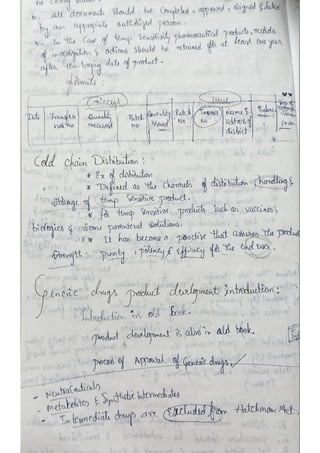 b. All documents should be completed, approved, signed & dated
by an appropriate authorized person.
v. In the case of temp sensitivity pharmaceutical products, records
of investigation & actions should be retained for at least one year
after the expiry date of product.
formate:
Receipt Issued
Date Transfer note no Quantity received Batch no Quantity Issued Batch No Invoice no name & address of district Balance
Cold chain Distribution:
* Rx of distribution
* Defined as the channels of distribution, handling &
storage of temp sensitive product.
* for temp sensitive products such as vaccines,
biologics & some parenteral solutions.
* It has become a practice that assures the product
strength, purity, potency & efficacy for the end user.
Generic drugs product development introduction:
Introduction in old book.
product development is also in old book.
process of Approval of Generic drugs.
- Neutraceuticals
- Metabolites & Synthetic Intermediates
- Intermediate drugs are excluded from Hatchman Act.